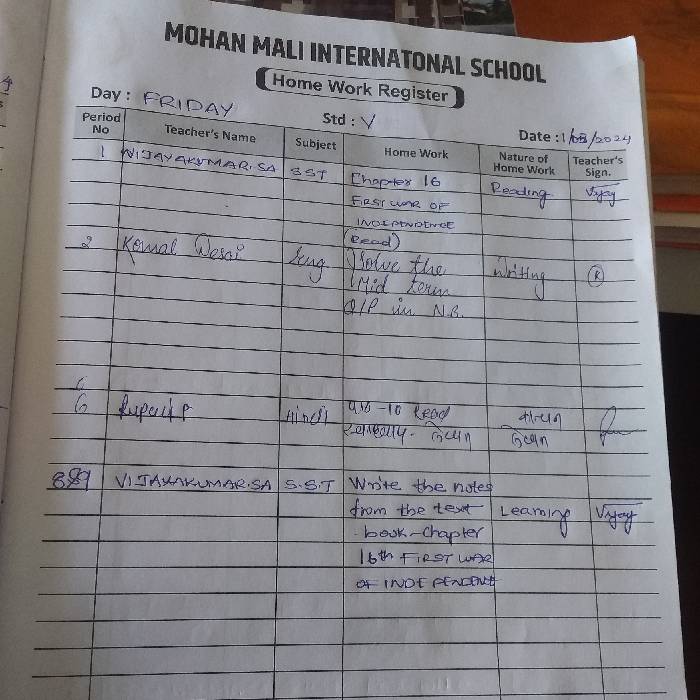 MOHAN MALI INTERNATONAL SCHOOL
Home Work Register
Day : FRIDAY
Std : V
Date : 1/08/2024
Period No Teacher's Name Subject Home Work Nature of Home Work Teacher's Sign.
1 VIJAYAKUMAR.SA SST Chapter 16 Reading Vijay
FIRST WAR OF
INDEPENDENCE
(Read)
2 Komal Desai Eng Solve the writing
Mid term
Q/P in N.B.
6
6 Rupali P Hindi Read
8&9 VIJAYAKUMAR.SA S.S.T Write the notes
from the text Learning Vijay
book-Chapter
16th FIRST WAR
OF INDEPENDENCE